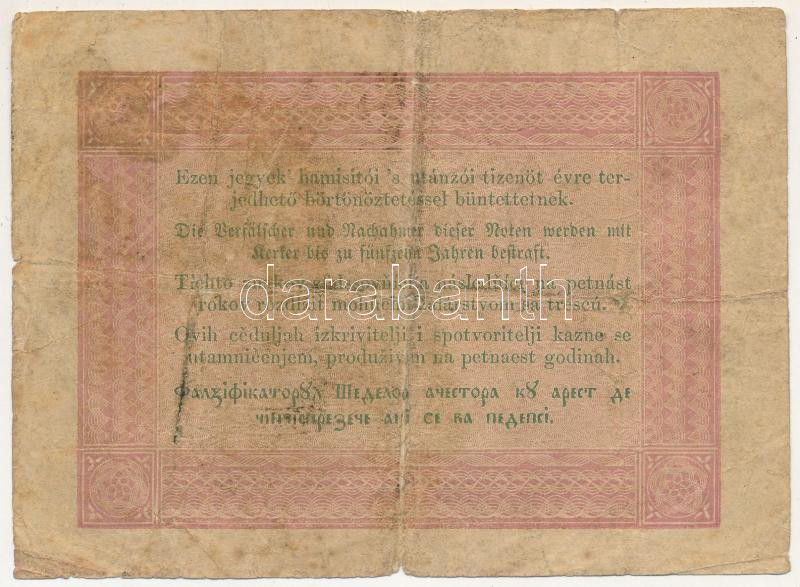 Ezen jegyek' hamisítói 's utánzói tizenöt évre ter-
jedhető börtönöztetéssel büntettetnek.
Die Verfälscher und Nachahmer dieser Noten werden mit
Kerker bis zu fünfzehn Jahren bestraft.
Tichto následníci, na petnást
rokov
darabanth
Ovih cĕduljah izkrivitelji i spotvoritelji kazne se
utamničĕnjem, produživim na petnaest godinah.
Фалзіфікаторꙋл Шеделор ачестора кꙋ арест де
чінчіспрезече ані се ва педепсі.